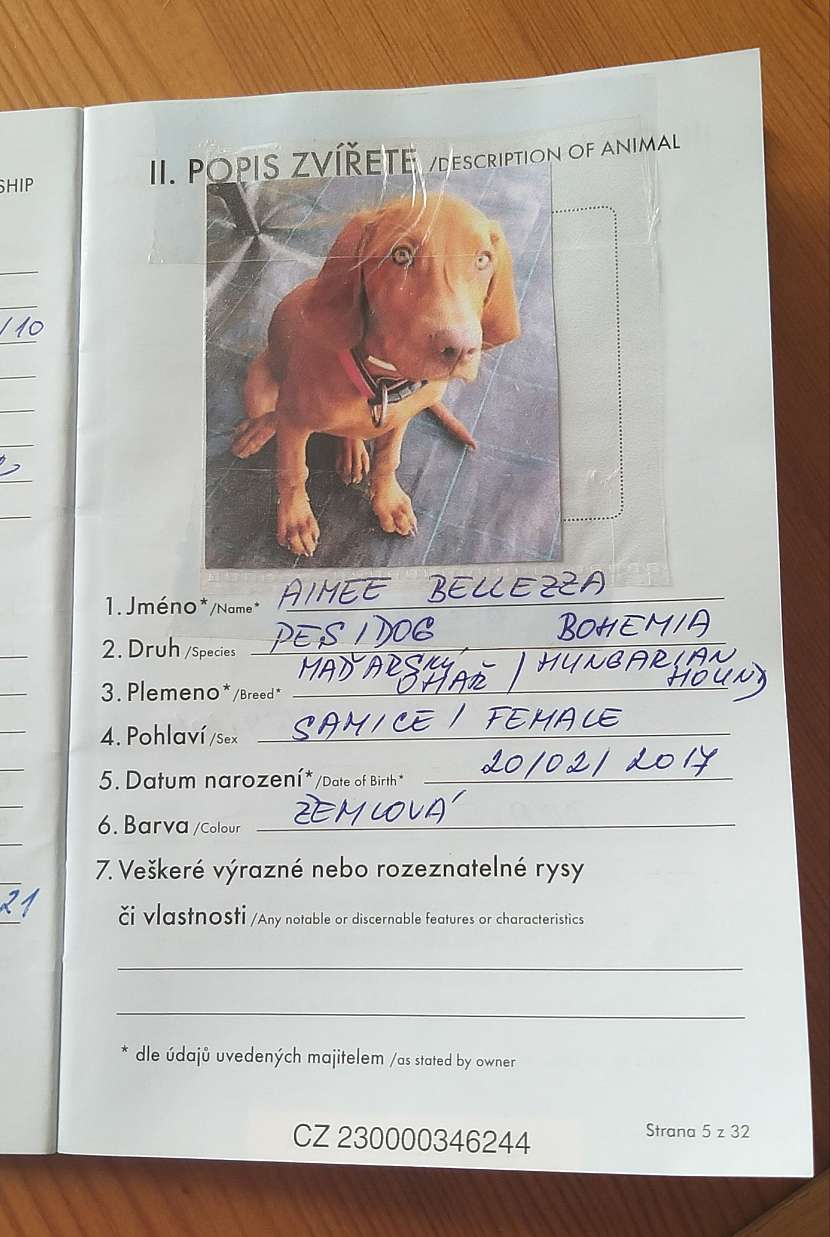 SHIP
/10
21
II. POPIS ZVÍŘETE /DESCRIPTION OF ANIMAL
1. Jméno*/Name* AIMEE BELLEZZA
BOHEMIA
2. Druh /Species PES / DOG
3. Plemeno*/Breed* MAĎARSKÝ OHAŘ / HUNGARIAN HOUND
4. Pohlaví /Sex SAMICE / FEMALE
5. Datum narození*/Date of Birth* 20/02/2017
6. Barva /Colour ŽEMLOVÁ
7. Veškeré výrazné nebo rozeznatelné rysy
či vlastnosti /Any notable or discernable features or characteristics
* dle údajů uvedených majitelem /as stated by owner
CZ 230000346244
Strana 5 z 32